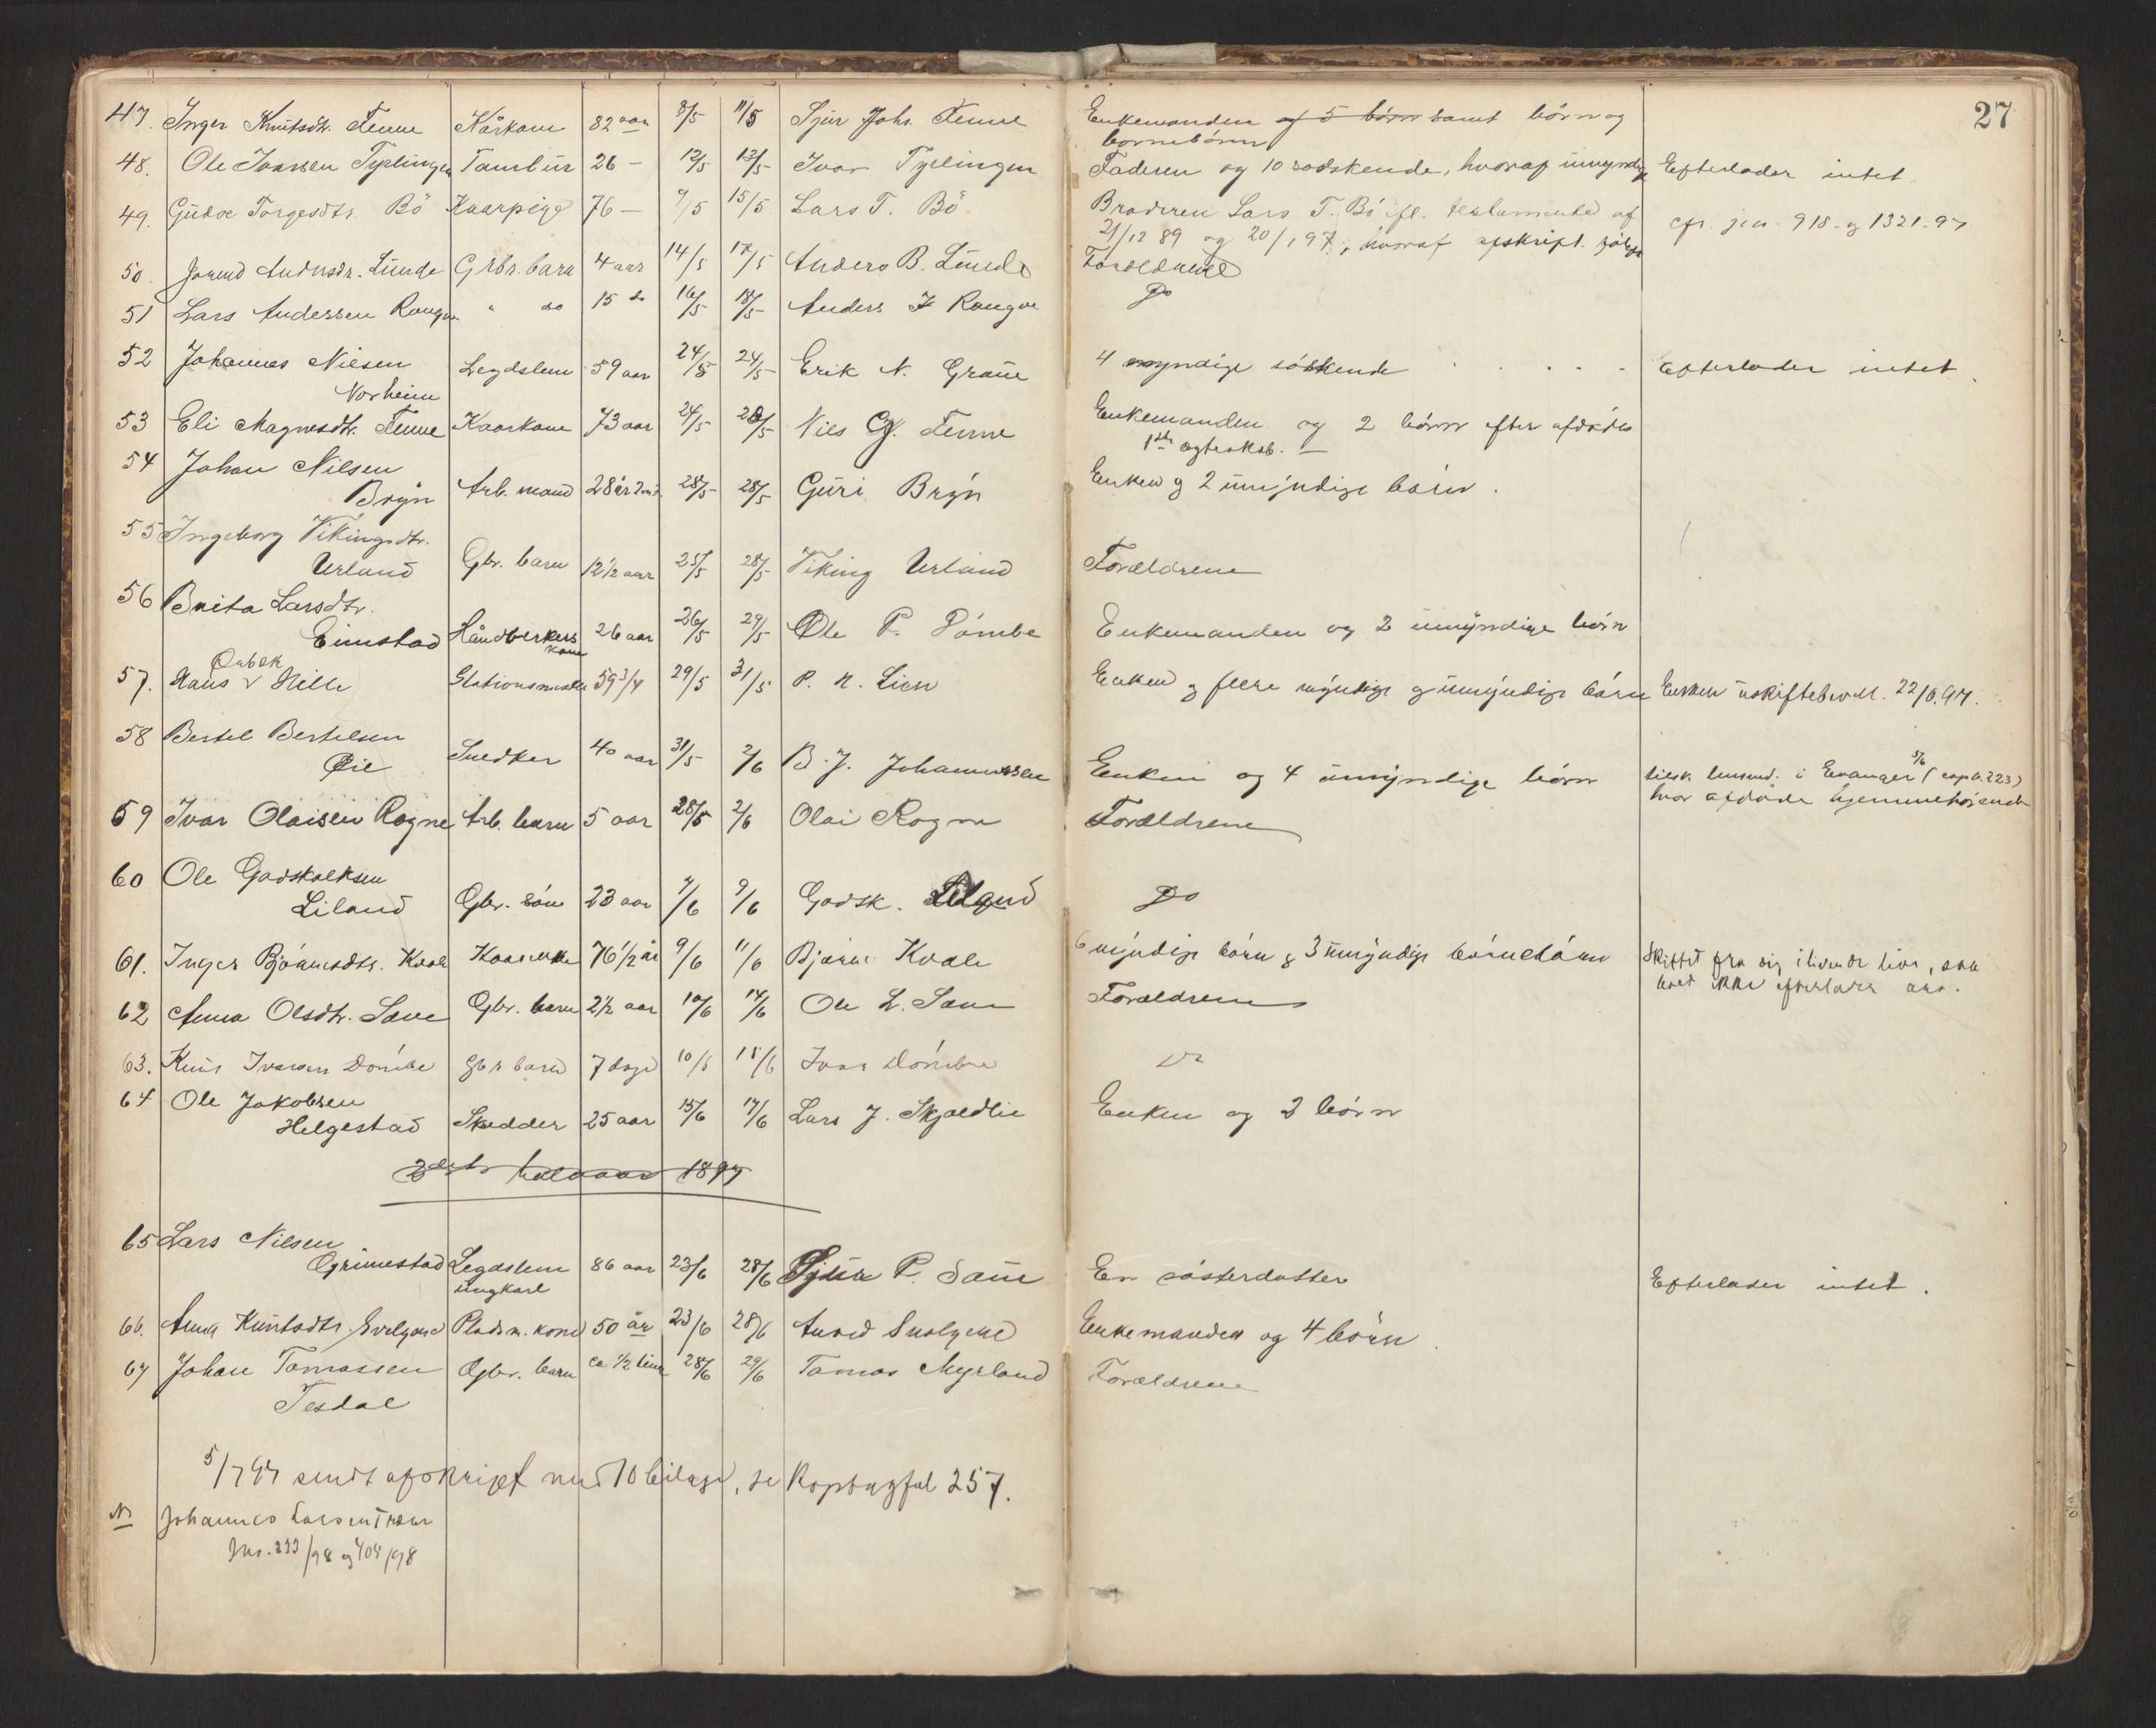 27
47. Inger Knutsdtr. Tenne Kårkone 82 aar 8/5 11/5 Sjur Johs. Tenne Enkemanden og 5 börn samt börn og
bornebörn
48. Ole Ivarssen Tyrlingen Tambur 26 — 12/5 13/5 Ivar Tyrlingen Faderen og 10 sødskende, hvoraf umyndige Efterlader intet.
49. Gudve Torgesdtr. Bö Kaarpige 76 — 9/5 15/5 Lars T. Bö Broderen Lars T. Bö ifl. testamente af cfr. jrn. 918 og 1321.97
21/12 89 og 20/1 97, hvoraf afskrift følger
50. Andersdr. Lunde Grbr. barn 4 aar 14/5 17/5 Anders B. Lunde Forældrene
51 Lars Anderssen Rongve " do 15 do 16/5 18/5 Anders I Rongve Do
52 Johannes Nielsen
Norheim Legdslem 59 aar 24/5 24/5 Erik N. Graue 4 myndige söskende . . . . Efterlader intet.
53 Eli Magnesdtr. Tenne Kaarkone 73 aar 24/5 28/5 Nils G. Tenne Enkemanden og 2 börn efter afdödes
1ste egteskab. —
54 Johan Nilsen
Bryn Arb. mand 28 år 28/5 28/5 Guri Bryn Enken og 2 umyndige börn.
55 Ingeborg Vikingsdtr.
Urland Gbr. barn 12 1/2 aar 25/5 28/5 Viking Urland Forældrene
56 Brita Larsdtr.
Eimstad Håndverkers kone 26 aar 26/5 29/5 Ole P. Dömbe Enkemanden og 2 umyndige börn
57. Hans Hille Stationsmester 59 3/4 29/5 31/5 P. N. Lien Enken og flere myndige og umyndige börn Enken uskiftebevill. 22/6.97.
58 Bertel Bertelsen
Øie Snedker 40 aar 31/5 2/6 B. J. Johannessen Enken og 4 umyndige börn tilsk. lensmd. i Evanger 5/6 (copb. 223)
hvor afdöde hjemmehörende
59 Ivar Olaisen Rogne Arb. barn 5 aar 28/5 2/6 Olai Rogne Forældrene
60 Ole Godskalksen
Liland Gbr. sön 23 aar 7/6 9/6 Godsk. Liland Do
61. Inger Bjørnesdtr. Kvale Kaarenke 76 1/2 år 9/6 11/6 Bjørne Kvale 6 myndige börn & 3 umyndige börnebörn Skiftet fra sig i levende live, saa
boet ikke efterlader
62 Anna Olsdtr. Saue Gbr. barn 2 1/2 aar 10/6 14/6 Ole L. Saue Forældrene
63. Knut Ivarsen Dömbe Gbr barn 7 dage 10/6 15/6 Ivar Dömbe Do
64 Ole Jakobsen
Helgestad Skredder 25 aar 15/6 17/6 Lars J. Skjeldlie Enken og 2 börn
2det halvaar 1897
65 Lars Nilsen
Grimestad Legdslem
ungkarl 86 aar 23/6 28/6 Sjur P. Saue En sösterdatter Efterlader intet.
66. Anna Knutsdtr. Plads.m. kone 50 år 23/6 28/6 Enkemanden og 4 börn.
67 Johan Tomassen
Tesdal Gbr. barn ca 1/2 time 28/6 29/6 Tomas Myrland Forældrene
5/7 97 sendt afskrift med 10 bilage, se Kopibog fol 257.
N Johannes Larsen
Jno. 333/98 og 404/98